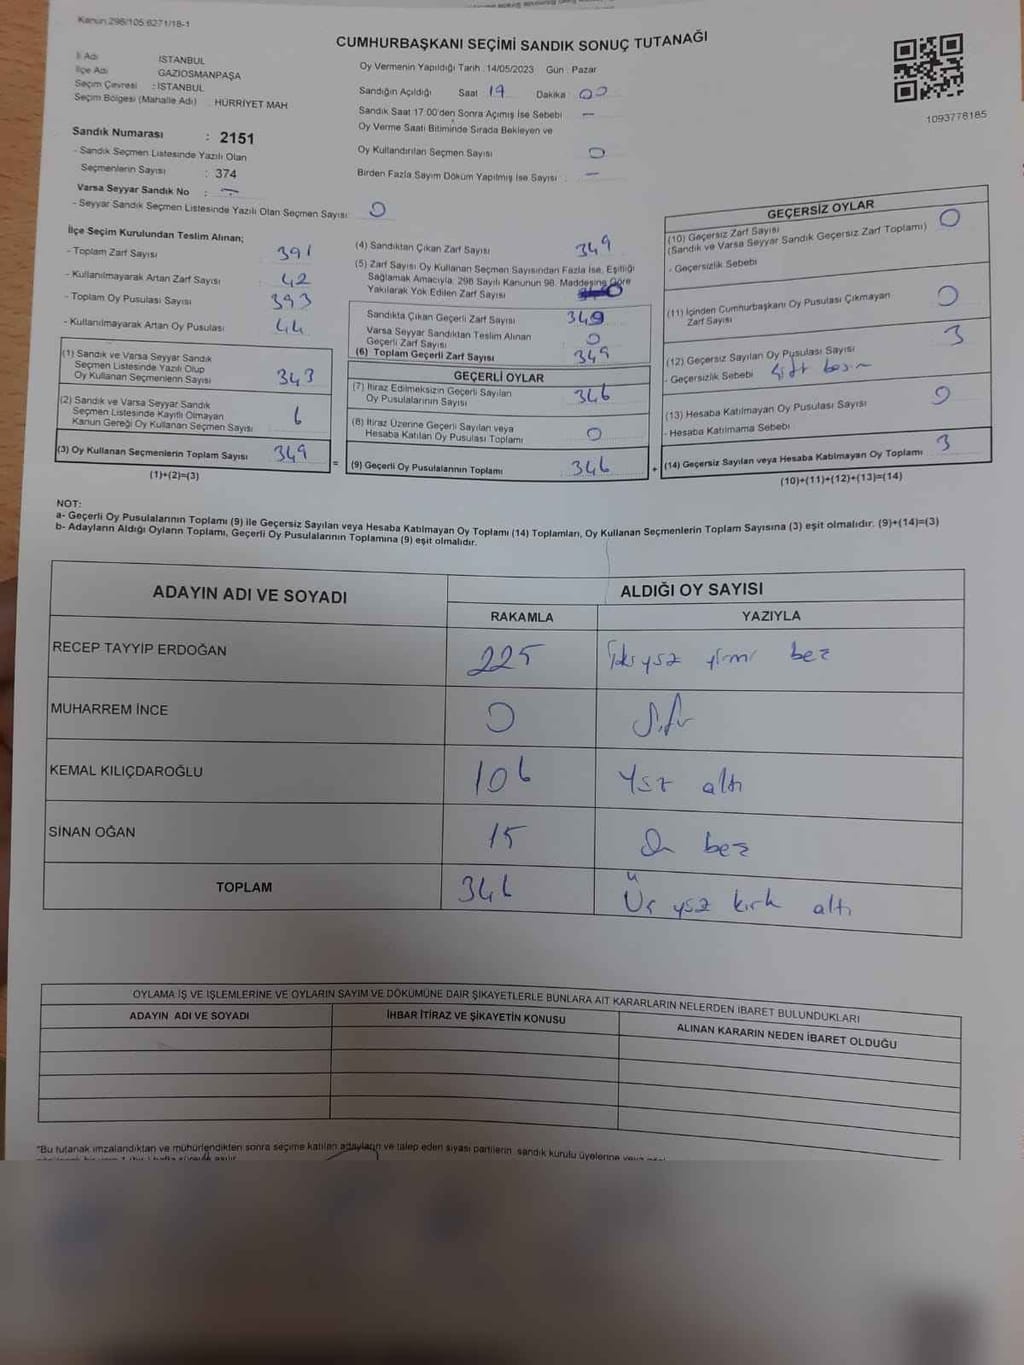 Kanun 298/105 6271/18-1
CUMHURBAŞKANI SEÇİMİ SANDIK SONUÇ TUTANAĞI
İl Adı : İSTANBUL
İlçe Adı : GAZİOSMANPAŞA
Seçim Çevresi : İSTANBUL
Seçim Bölgesi (Mahalle Adı) : HÜRRİYET MAH
Oy Vermenin Yapıldığı Tarih : 14/05/2023 Gün : Pazar
Sandığın Açıldığı Saat 19 Dakika 00
Sandık Saat 17.00'den Sonra Açımış İse Sebebi —
Oy Verme Saati Bitiminde Sırada Bekleyen ve
Oy Kullandırılan Seçmen Sayısı 0
Birden Fazla Sayım Döküm Yapılmış İse Sayısı : —
1093778185
Sandık Numarası : 2151
- Sandık Seçmen Listesinde Yazılı Olan
Seçmenlerin Sayısı : 374
Varsa Seyyar Sandık No : —
- Seyyar Sandık Seçmen Listesinde Yazılı Olan Seçmen Sayısı: 0
İlçe Seçim Kurulundan Teslim Alınan;
- Toplam Zarf Sayısı : 391
- Kullanılmayarak Artan Zarf Sayısı : 42
- Toplam Oy Pusulası Sayısı : 393
- Kullanılmayarak Artan Oy Pusulası : 44
(1) Sandık ve Varsa Seyyar Sandık
Seçmen Listesinde Yazılı Olup
Oy Kullanan Seçmenlerin Sayısı 343
(2) Sandık ve Varsa Seyyar Sandık
Seçmen Listesinde Kayıtlı Olmayan
Kanun Gereği Oy Kullanan Seçmen Sayısı 6
(3) Oy Kullanan Seçmenlerin Toplam Sayısı 349
(1)+(2)=(3)
(4) Sandıktan Çıkan Zarf Sayısı 349
(5) Zarf Sayısı Oy Kullanan Seçmen Sayısından Fazla İse, Eşitliği
Sağlamak Amacıyla, 298 Sayılı Kanunun 98. Maddesine Göre
Yakılarak Yok Edilen Zarf Sayısı 0
Sandıkta Çıkan Geçerli Zarf Sayısı 349
Varsa Seyyar Sandıktan Teslim Alınan
Geçerli Zarf Sayısı 0
(6) Toplam Geçerli Zarf Sayısı 349
GEÇERLİ OYLAR
(7) İtiraz Edilmeksizin Geçerli Sayılan
Oy Pusulalarının Sayısı 346
(8) İtiraz Üzerine Geçerli Sayılan veya
Hesaba Katılan Oy Pusulası Toplamı 0
= (9) Geçerli Oy Pusulalarının Toplamı 346 +
GEÇERSİZ OYLAR
(10) Geçersiz Zarf Sayısı 0
(Sandık ve Varsa Seyyar Sandık Geçersiz Zarf Toplamı)
- Geçersizlik Sebebi
(11) İçinden Cumhurbaşkanı Oy Pusulası Çıkmayan
Zarf Sayısı 0
(12) Geçersiz Sayılan Oy Pusulası Sayısı 3
- Geçersizlik Sebebi çift basım
(13) Hesaba Katılmayan Oy Pusulası Sayısı 0
- Hesaba Katılmama Sebebi
(14) Geçersiz Sayılan veya Hesaba Katılmayan Oy Toplamı 3
(10)+(11)+(12)+(13)=(14)
NOT:
a- Geçerli Oy Pusulalarının Toplamı (9) ile Geçersiz Sayılan veya Hesaba Katılmayan Oy Toplamı (14) Toplamları, Oy Kullanan Seçmenlerin Toplam Sayısına (3) eşit olmalıdır. (9)+(14)=(3)
b- Adayların Aldığı Oyların Toplamı, Geçerli Oy Pusulalarının Toplamına (9) eşit olmalıdır.
ADAYIN ADI VE SOYADI ALDIĞI OY SAYISI
RAKAMLA YAZIYLA
RECEP TAYYİP ERDOĞAN 225 İki yüz yirmi beş
MUHARREM İNCE 0 Sıfır
KEMAL KILIÇDAROĞLU 106 Yüz altı
SİNAN OĞAN 15 On beş
TOPLAM 346 Üç yüz kırk altı
OYLAMA İŞ VE İŞLEMLERİNE VE OYLARIN SAYIM VE DÖKÜMÜNE DAİR ŞİKAYETLERLE BUNLARA AİT KARARLARIN NELERDEN İBARET BULUNDUKLARI
ADAYIN ADI VE SOYADI İHBAR İTİRAZ VE ŞİKAYETİN KONUSU ALINAN KARARIN NEDEN İBARET OLDUĞU
"Bu tutanak imzalandıktan ve mühürlendikten sonra seçime katılan adayların ve talep eden siyasi partilerin sandık kurulu üyelerine veya